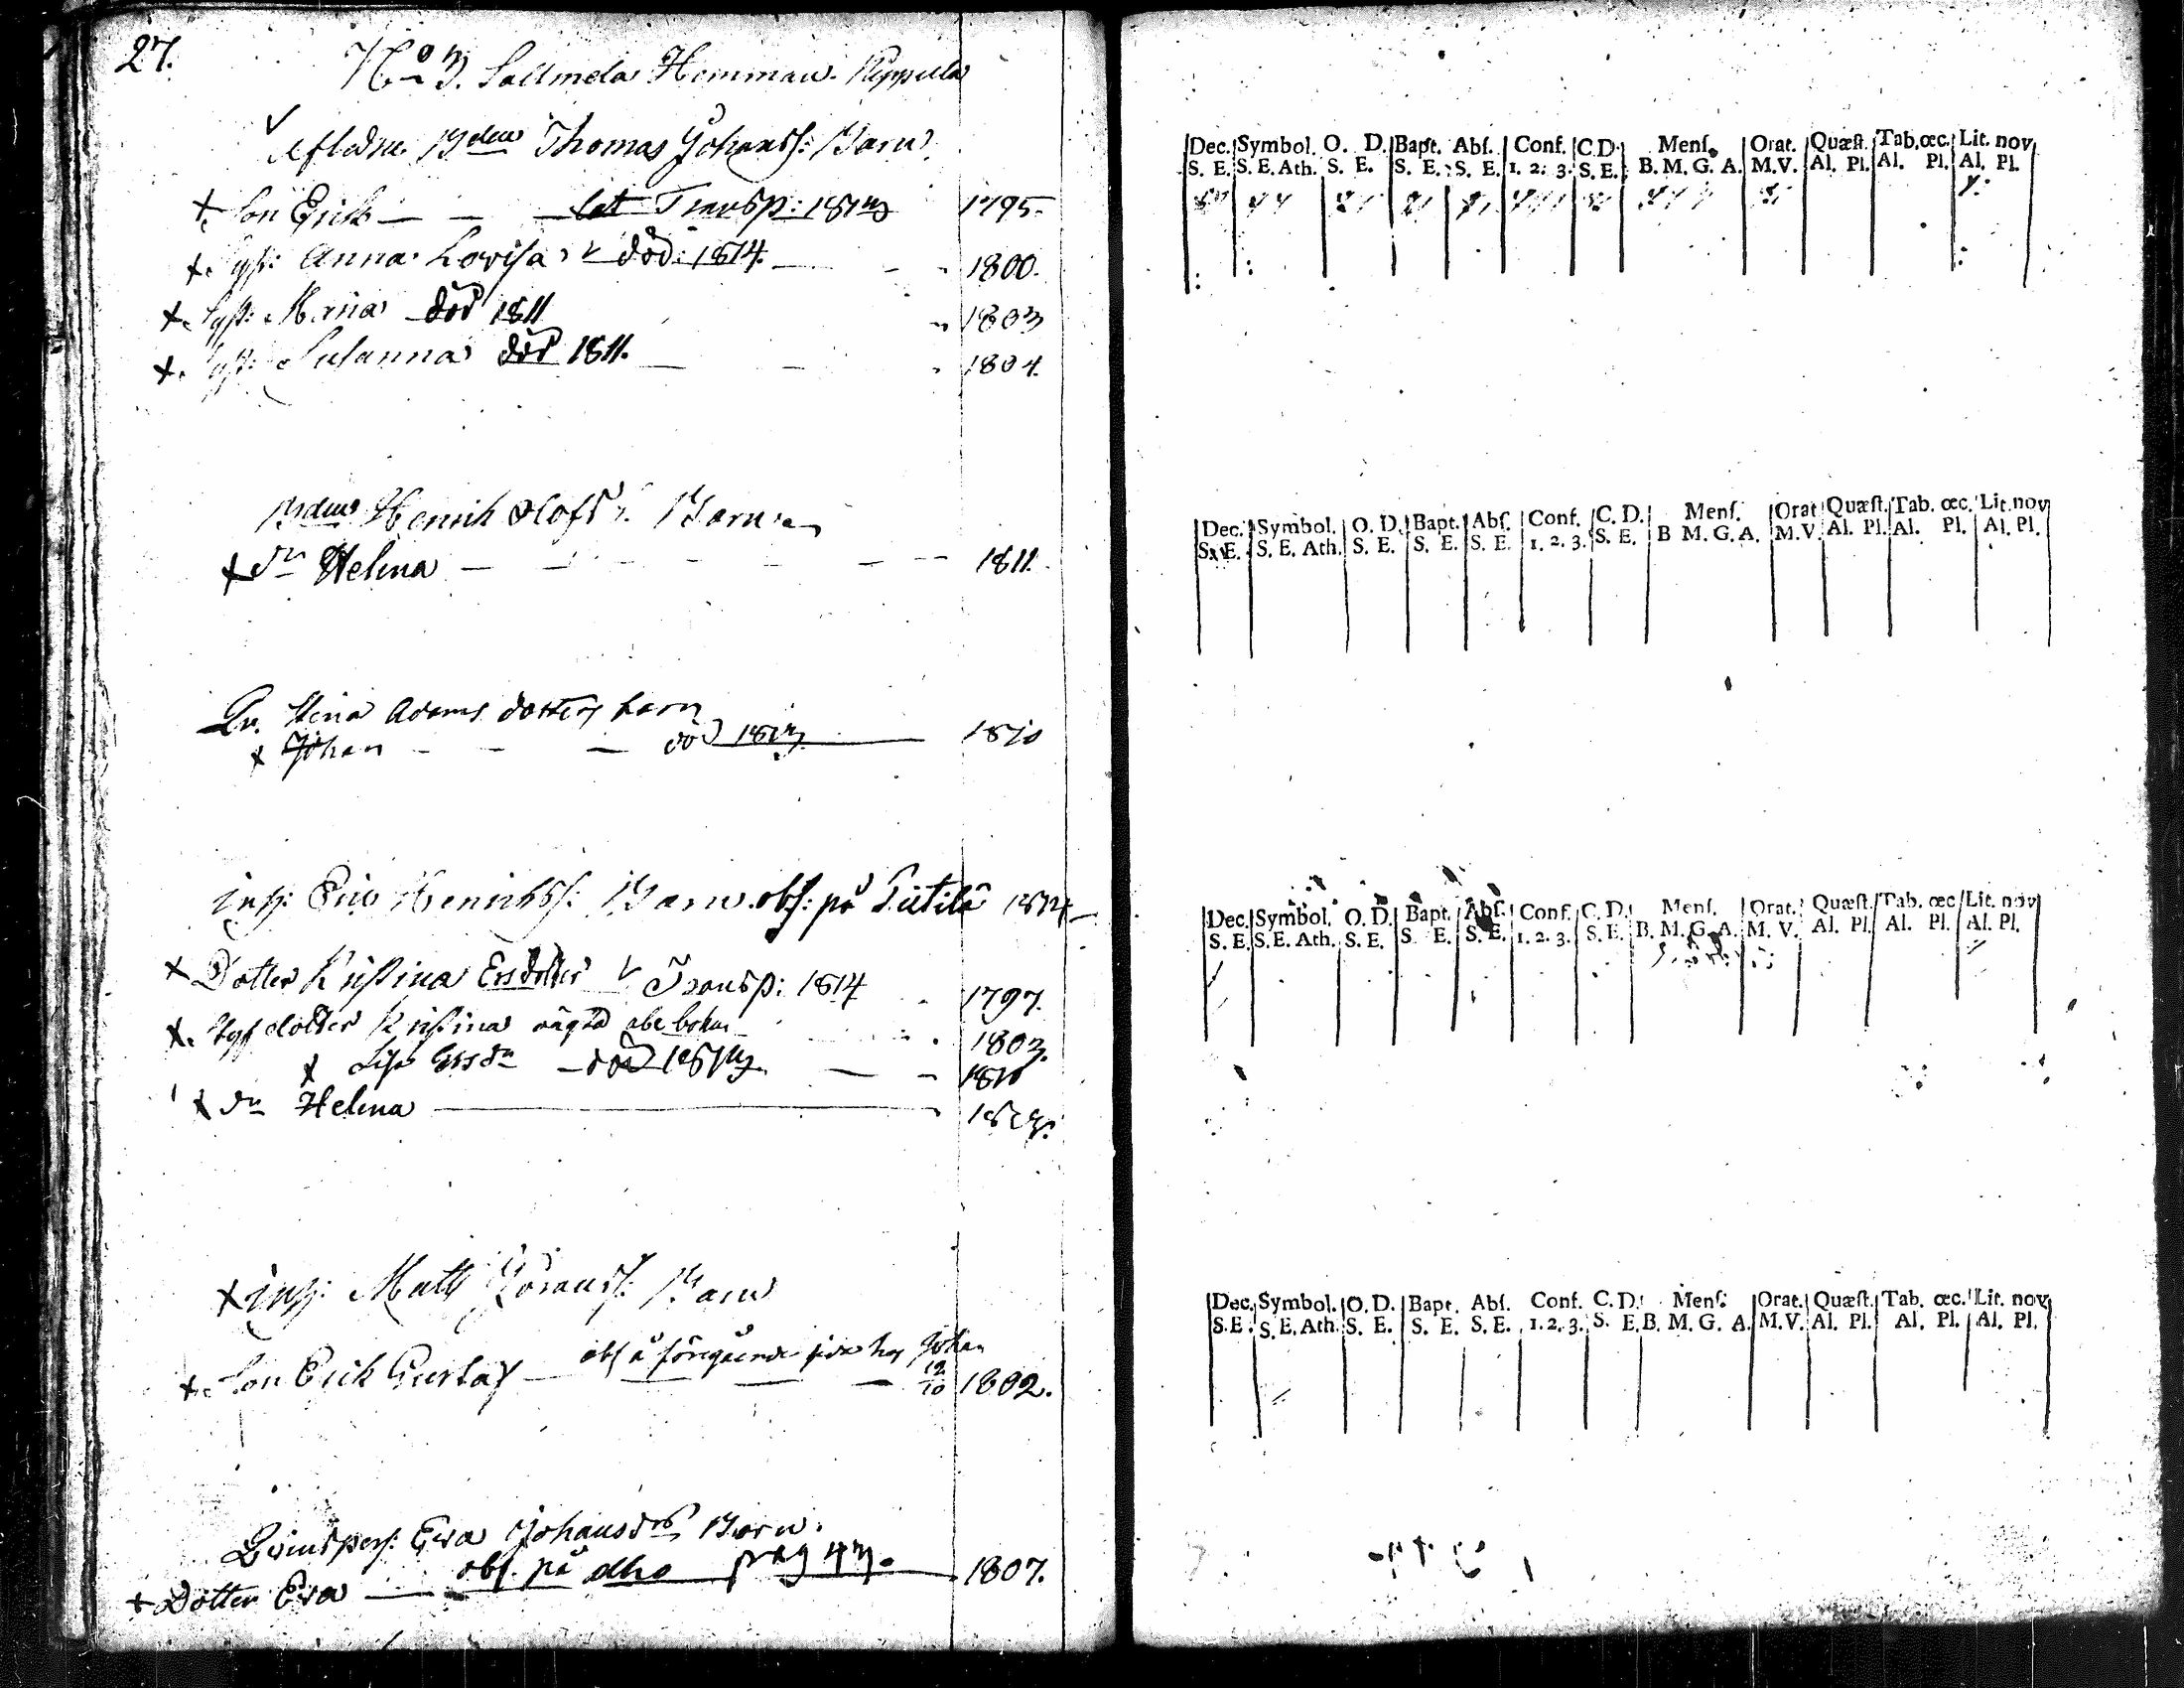 27.
No 3. Sallmela Hemman. Reppula
Aflidne Bden Thomas Johanss: Barn
+ Son Erick — — lat Transp: 1813 1795.
+ Syst: Anna Lovisa död: 1814. — 1800.
+ Syst: Maria död 1811 1803
+ Syst: Susanna död 1811. — 1804.
Bdens Henrik Barn
+ dr Helena — — — 1811.
Qv. Stina Adams dotters barn
+ Johan — — — död 1813 1810
inh: Eric Henrikss: Barn. obs: på Tiitilä
+ Dotter Kristina Ersdotter Transp: 1814 1797.
+ Styfdotter Kristina 1803.
+ Lisa Ersdr — död 1810
+ dr Helena
+ inh: Matts Göranss: Barn
+ Son Erick Gustaf — obs å föregående sida hos Johan 12/10 1802.
Qvinspers: Eva Johansdrs Barn.
+ Dotter Eva — obs. på dho pag 43. 1807.
Dec. Symbol. O. D. Bapt. Abs. Conf. C.D. Mens. Orat. Quæst. Tab. œc. Lit. nov
S. E. S. E. Ath. S. E. S. E. S. E. 1. 2. 3. S. E. B. M. G. A. M.V. Al. Pl. Al. Pl. Al. Pl.
Dec. Symbol. O. D. Bapt. Abs. Conf. C. D. Mens. Orat Quæst. Tab. œc. Lit. nov
S. E. S. E. Ath. S. E. S. E. S. E. 1. 2. 3. S. E. B M. G. A. M.V. Al. Pl. Al. Pl. Al. Pl.
Dec. Symbol. O. D. Bapt. Abs. Conf. C. D. Mens. Orat. Quæst. Tab. œc Lit. nov
S. E. S. E. Ath. S. E. S. E. S. E. 1. 2. 3. S. E. B. M. G. A. M. V. Al. Pl. Al. Pl. Al. Pl.
Dec. Symbol. O. D. Bapt. Abs. Conf. C. D. Mens: Orat. Quæst. Tab. œc. Lit. nov
S. E. S. E. Ath. S. E. S. E. S. E. 1. 2. 3. S. E. B. M. G. A. M. V. Al. Pl. Al. Pl. Al. Pl.